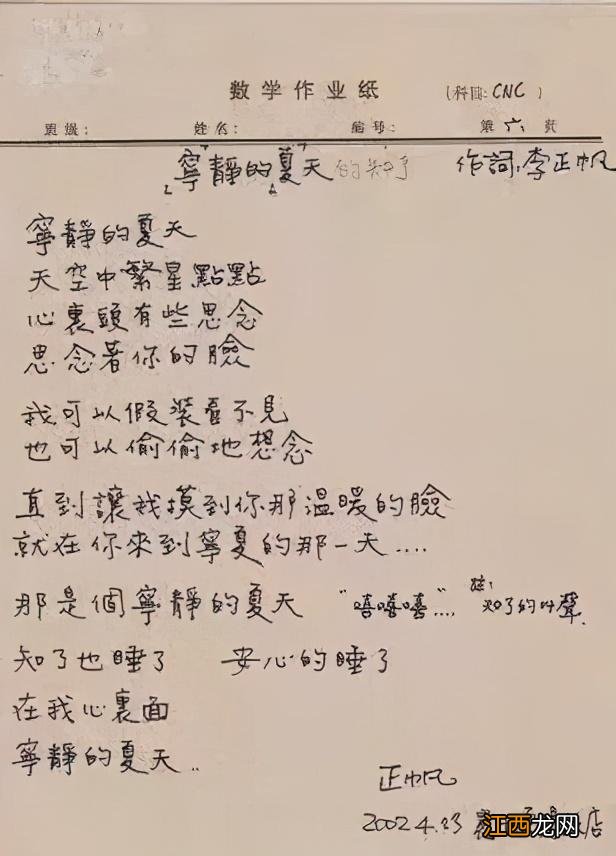 数学作业纸
(科目: CNC )
班级: 姓名: 编号: 第 六 页
寧靜的夏天的知了 作詞:李正帆
寧靜的夏天
天空中繁星點點
心裏頭有些思念
思念著你的臉
我可以假裝看不見
也可以偷偷地想念
直到讓我摸到你那溫暖的臉
就在你來到寧夏的那一天....
那是個寧靜的夏天 "嘻嘻嘻".... 註: 知了的叫聲.
知了也睡了 安心的睡了
在我心裏面
寧靜的夏天..
正帆
2002.4.23 店
江西龙网